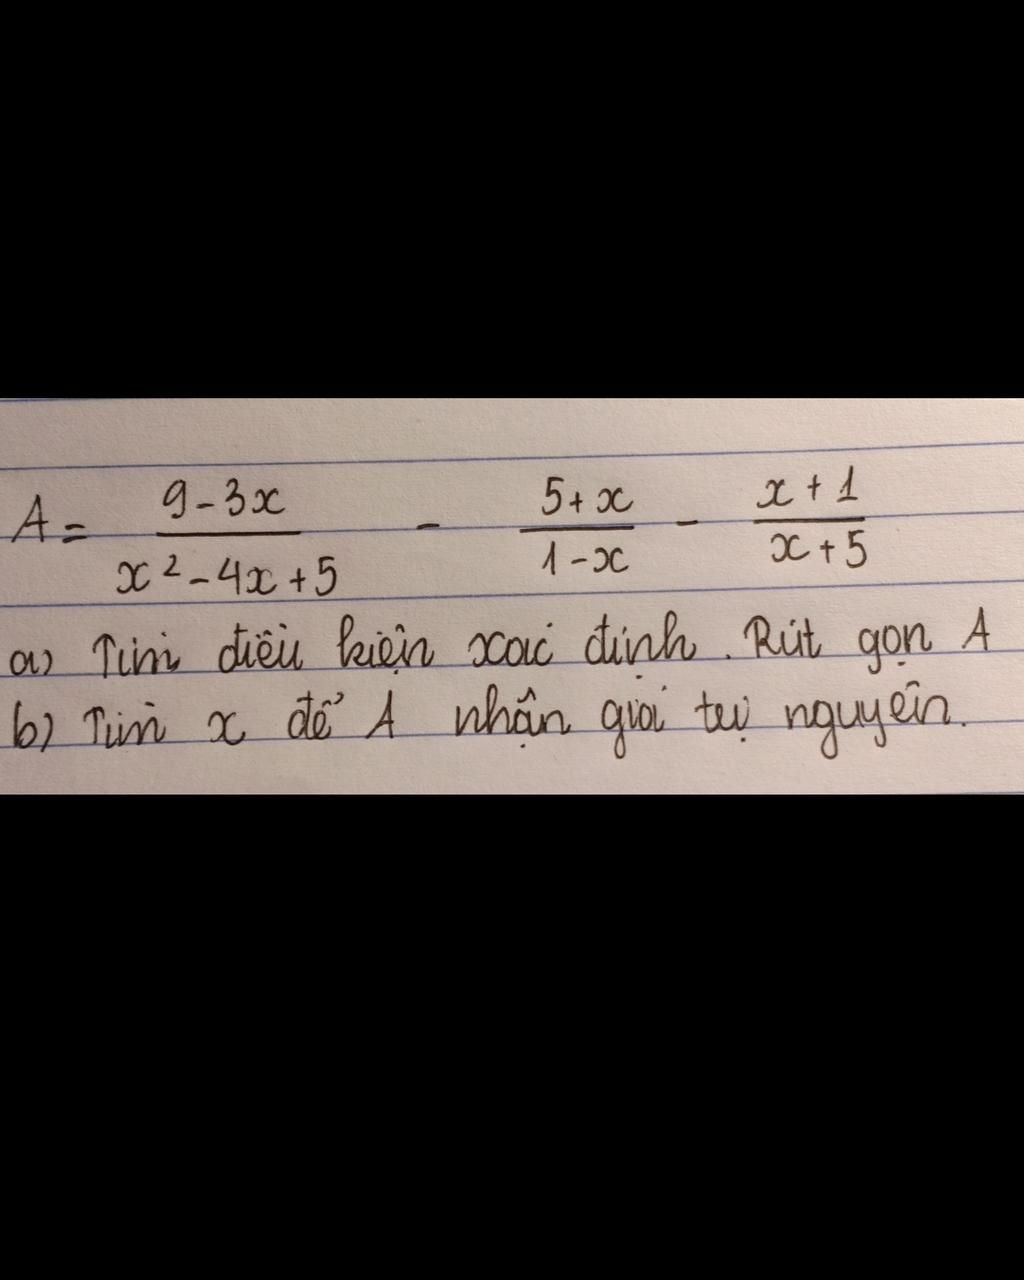 A = \frac{9-3x}{x^2-4x+5} - \frac{5+x}{1-x} - \frac{x+1}{x+5}
a) Tìm điều kiện xác định. Rút gọn A
b) Tìm x để A nhận giá trị nguyên.